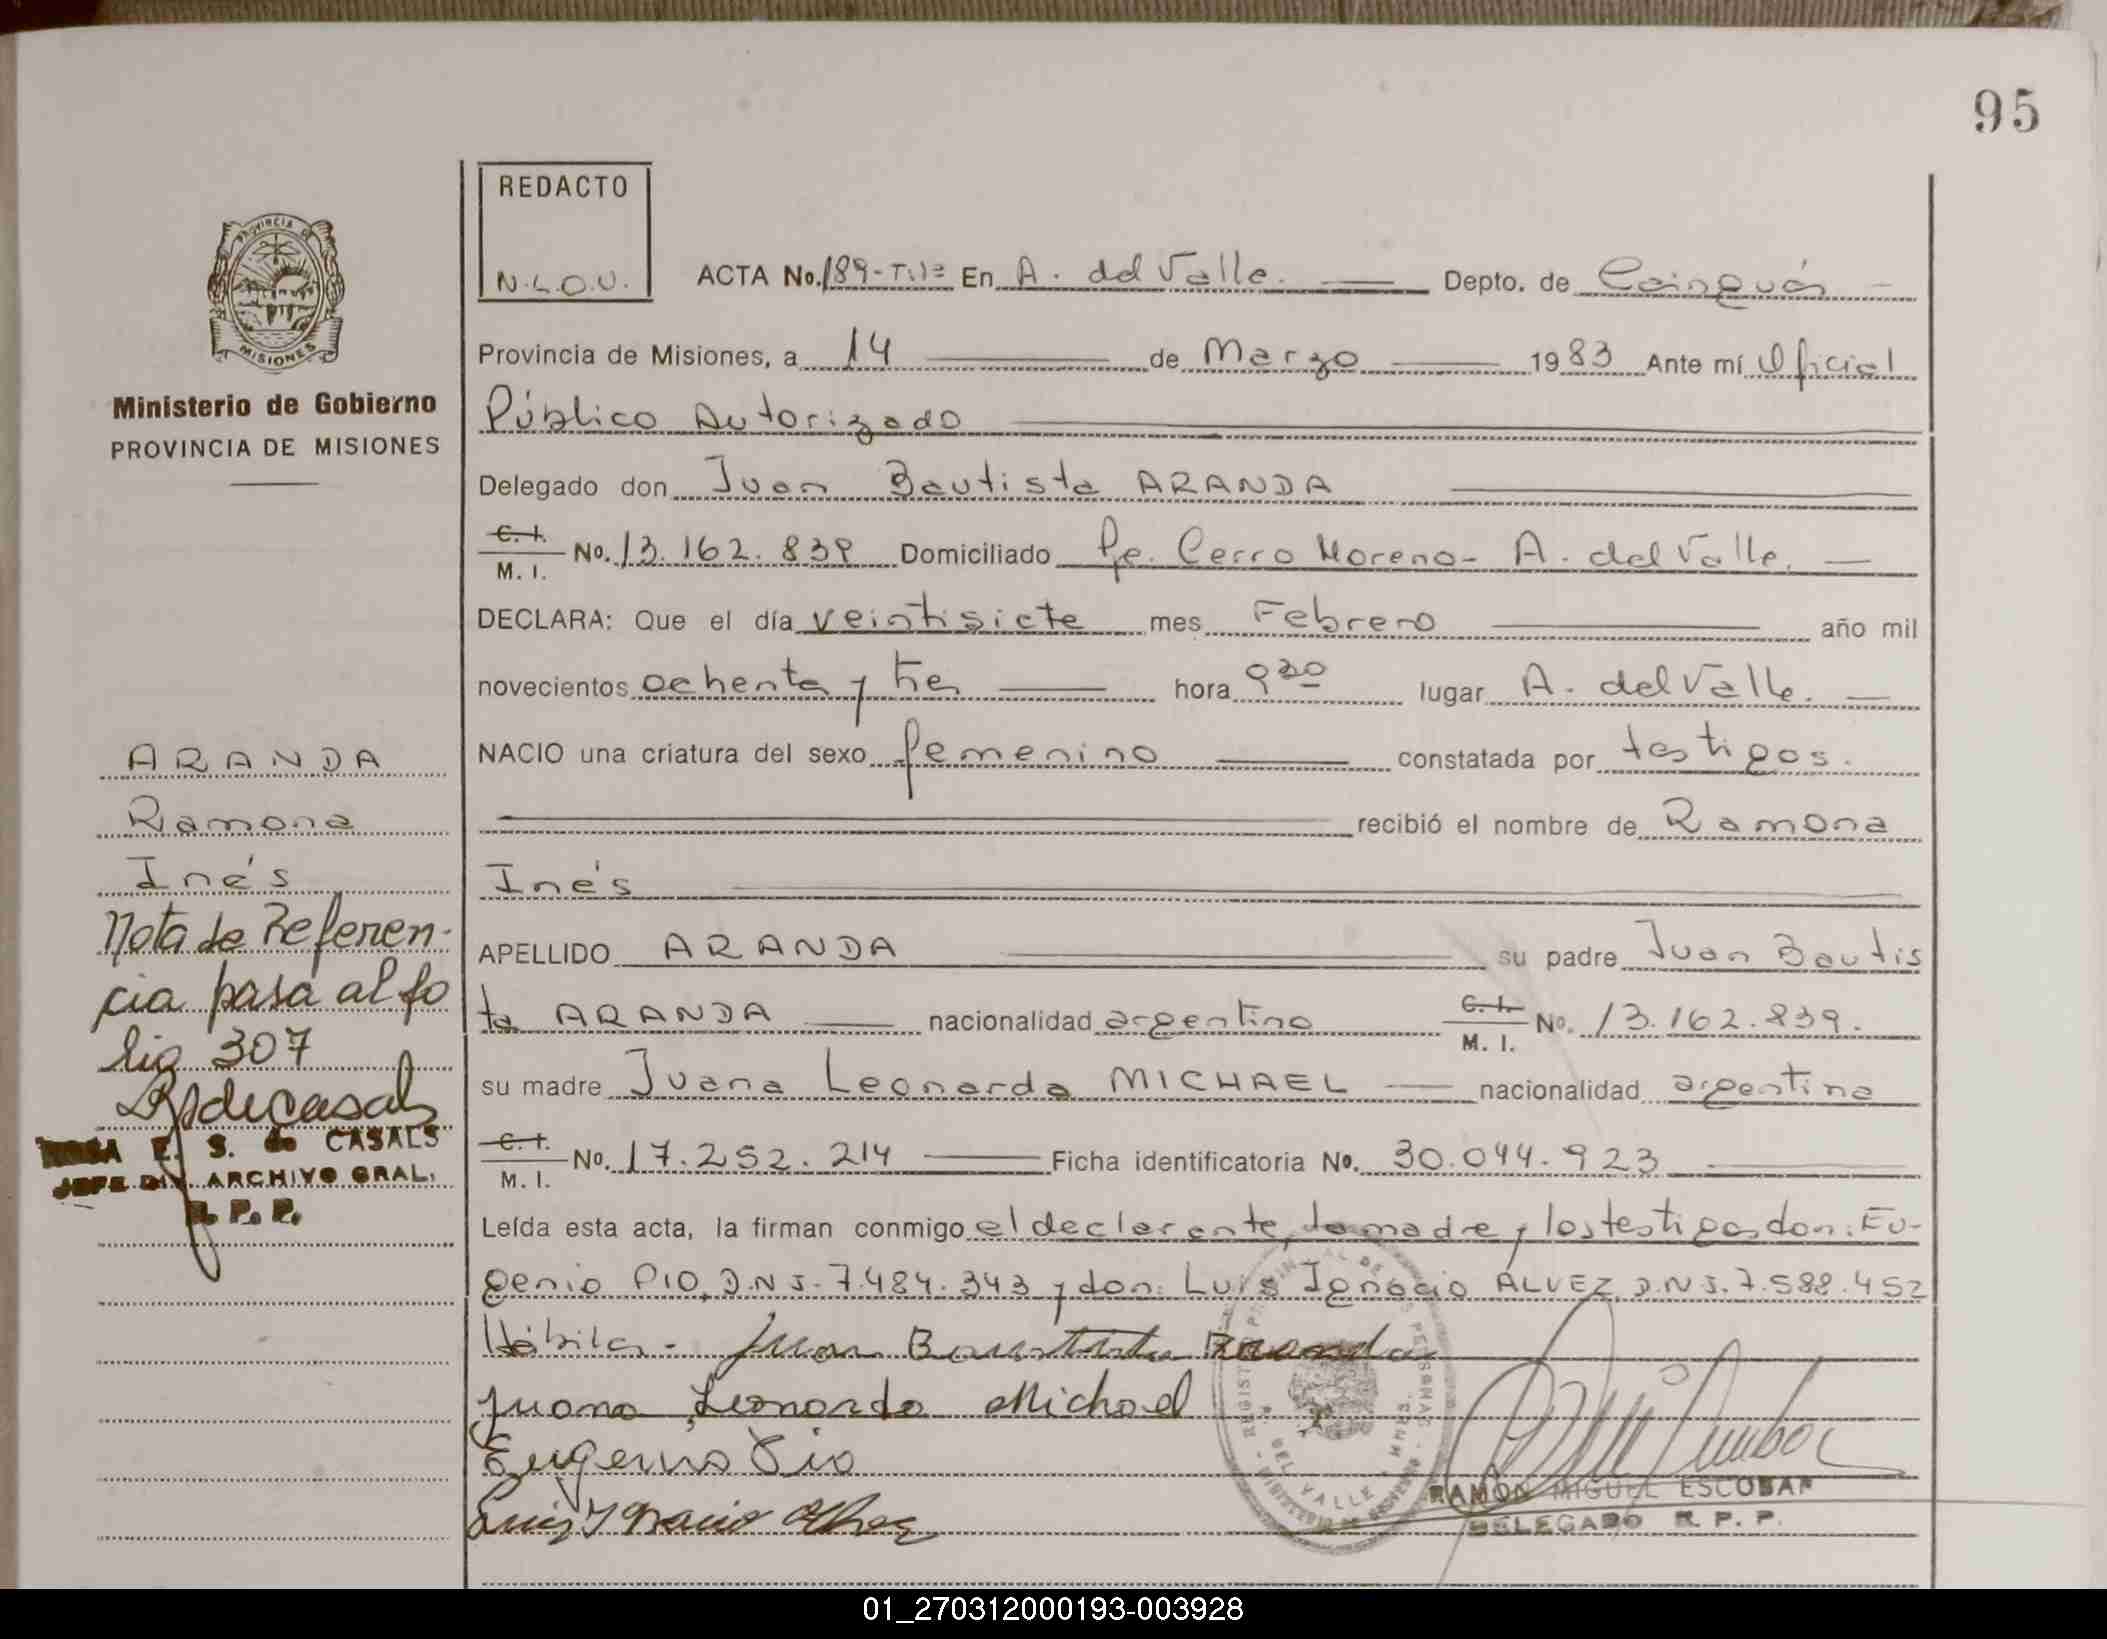 95
REDACTO
N.L.O.U.
Provincia de
MISIONES
Ministerio de Gobierno
PROVINCIA DE MISIONES
ACTA No. 189-T:1= En A. del Valle. Depto. de Cainguás
Provincia de Misiones, a 14 de Marzo 1983 Ante mí Oficial
Público Autorizado
Delegado don Juan Bautista ARANDA
C. I.
M. I. No. 13.162.839 Domiciliado Pje. Cerro Moreno- A. del Valle.
DECLARA: Que el día veintisiete mes Febrero año mil
novecientos ochenta y tres hora 9 30 lugar A. del Valle.
NACIO una criatura del sexo femenino constatada por testigos.
recibió el nombre de Ramona
Inés
APELLIDO ARANDA su padre Juan Bautis
ta ARANDA nacionalidad argentino C. I. M. I. No. 13.162.839.
su madre Juana Leonarda MICHAEL nacionalidad argentina
C. I.
M. I. No. 17.252.214 Ficha identificatoria No. 30.044.923
Leída esta acta, la firman conmigo el declarante, la madre y los testigos don: Eu-
genio PIO, D.N.I. 7.484.343 y don: Luis Ignacio ALVEZ D.N.I. 7.588.452
Hábiles.- Juan Bautista Aranda
Juana Leonarda Michael
Eugenio Pio
Luis Ignacio Alvez
RAMON MIGUEL ESCOBAR
DELEGADO R. P. P.
ARANDA
Ramona
Inés
Nota de Referen-
cia pasa al fo
lio 307
ROSA E. S. de CASALS
JEFE DIV. ARCHIVO GRAL.
R. P. P.
01_270312000193-003928